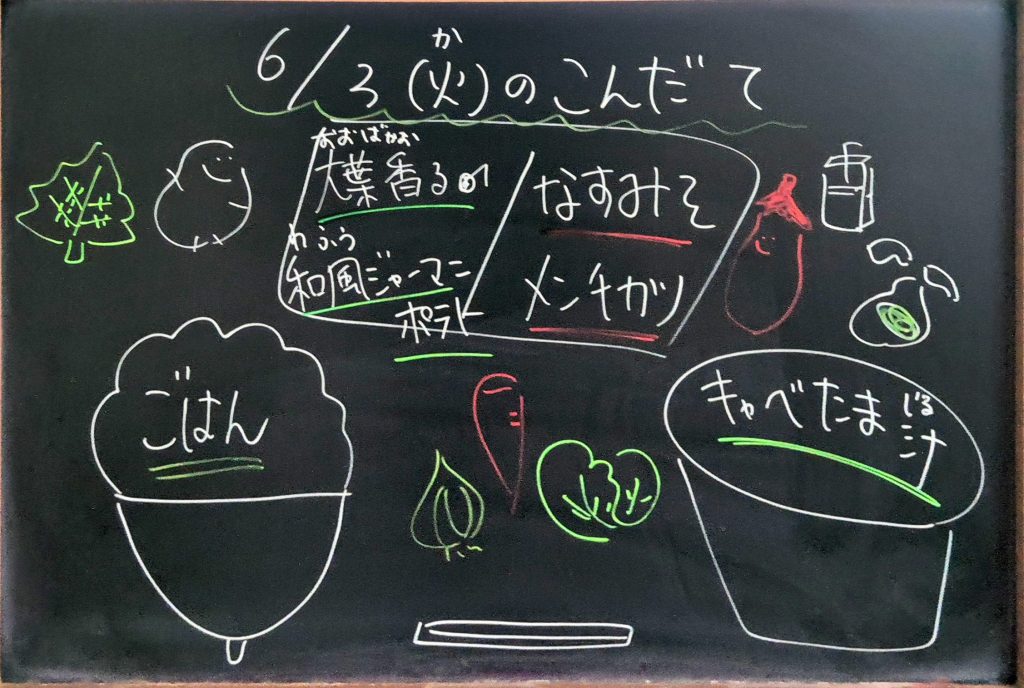 か
6/3(火)のこんだて
おおばかお
大葉香る
わふう
和風ジャーマン
ポテト
なすみそ
メンチカツ
ごはん
キャベたま汁
じる